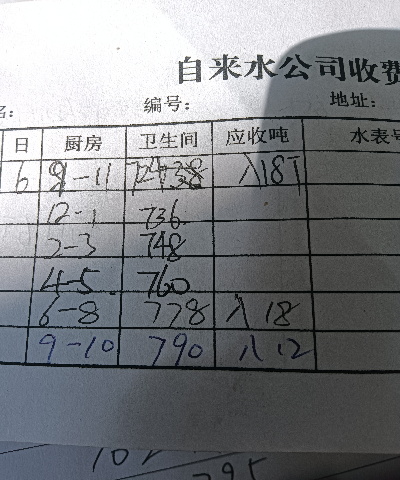 自来水公司收费
名: 编号: 地址:
日 厨房 卫生间 应收吨 水表号
6 9-11 入18T
12-1 736
2-3 748
4-5 760
6-8 778 入 18
9-10 790 入 12
795